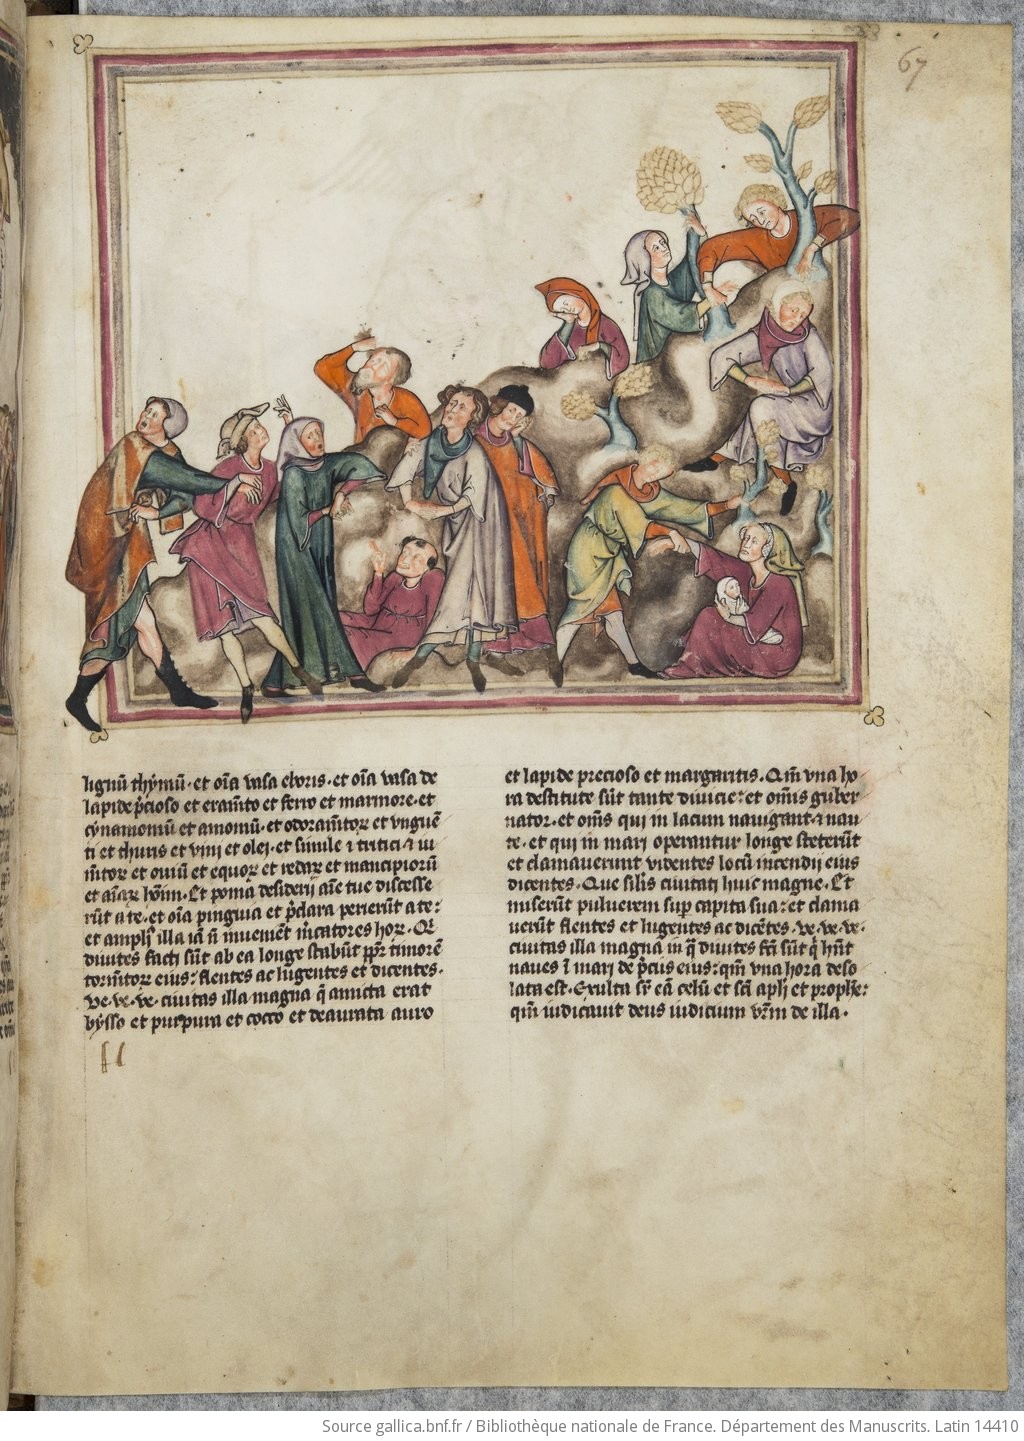 67
lignū thẏmū · et oīa vasa eboris · et oīa vasa de
lapide p̄cioso et eram̄to et ferro et marmore · et
cẏnamomū et amomū · et odoram̄toꝝ et vnguē
ti et thuris et vini et olei · et simile ⁊ tritici ⁊ iu
m̄toꝝ et ouiū et equoꝝ et redaꝝ et mancipiorū
et aīaꝝ hōīm · Et poma desiderij aīe tue discesse
rūt a te · et oīa pinguia et p̄clara perierūt a te :
et ampli illa iā n̄ inueniēt m̄catores hoꝝ · Qr̄
diuites facti sūt ab ea longe stabūt ꝓpr̄ timorē
torm̄toꝝ eius : flentes ac lugentes et dicentes ·
ve · ve · ve · ciuitas illa magna q̄ amicta erat
bẏsso et purpura et cocco et deaurata auro
et lapide precioso et margaritis · Qm̄ vna ho
ra destitute sūt tante diuicie : et om̄is guber
nator · et om̄s qui in lacum nauigant ⁊ nau
te · et qui in mari operantur longe steterūt
et clamauerunt videntes locū incendij eius
dicentes · Que silīs ciuitati huic magne · Et
miserūt puluerem sup capita sua : et clama
uerūt flentes et lugentes ac dicētes · ve · ve · ve ·
ciuitas illa magna in q̄ diuites fc̄i sūt q̄ hn̄t
naues ī mari de p̄ciis eius : qm̄ vna hora deso
lata est · Exulta sr̄ eā celū et sc̄i apl̄i et prophe :
qm̄ iudicauit deus iudicium vr̄m de illa ·
Source gallica.bnf.fr / Bibliothèque nationale de France. Département des Manuscrits. Latin 14410